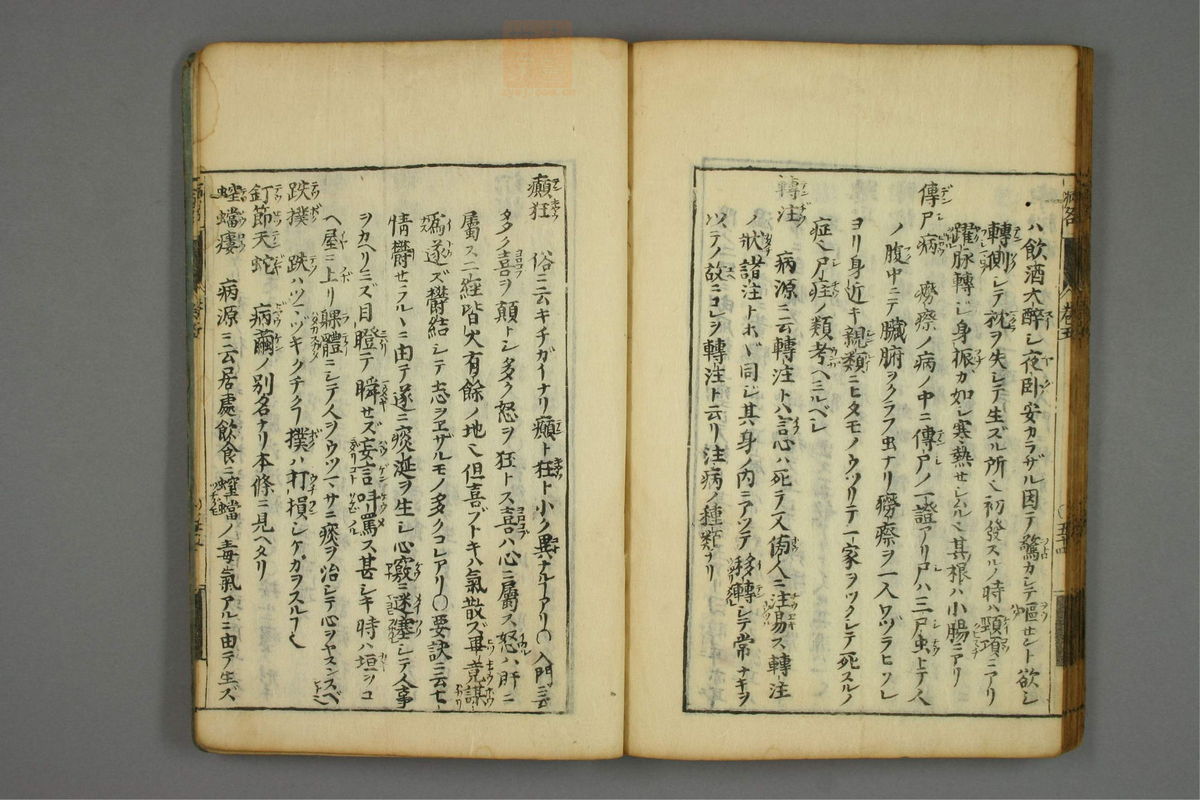 ハ飲酒大醉シ夜卧安カラザル因テ驚カシテ嘔セント欲シ
轉側シテ枕ヲ失シテ生ズル所也初發スルノ時ハ頸項ニアリ
躍脉轉ジ身振カ如シ寒熱セシムル也其根ハ小腸ニアリ
傳尸病 癆瘵ノ病ノ中ニ傳尸ノ一證アリ尸ハ三尸虫トテ人
ノ腹中ニテ臓腑ヲクラフ虫ナリ癆瘵ヲ一人ワヅラヒソレ
ヨリ身近キ親類ニヒタモノウツリテ一家ヲツクシテ死スルノ
症也尸疰ノ類考ヘミルベシ
轉注 病源ニ云轉注トハ言心ハ死テ又傍人ニ注易ス轉注
ノ狀諸注トホヾ同シ其身ノ内ニアツテ移轉シテ常ナキヲ
以テノ故ニコレヲ轉注ト云リ注病ノ種類ナリ
癲狂 俗ニ云キチガイナリ癲ト狂ト小ク異ナルアリ○入門ニ云
多ク喜ヲ顛トシ多ク怒ヲ狂トス喜ハ心ニ屬ス怒ハ肝ニ
屬ス二經皆火有餘ノ地也但喜ブトキハ氣散ズ畢竟謀
爲遂ズ鬱結シテ志ヲヱザルモノ多クコレアリ○要訣ニ云七
情鬱セラルヽニ由テ遂ニ痰涎ヲ生シ心竅ニ迷塞シテ人事
ヲカヘリミズ目瞪テ瞬セズ妄言呌罵ス甚シキ時ハ垣ヲコ
ヘ屋ニ上リ躶體ニシテ人ヲウツマサニ痰ヲ治シテ心ヲヤスンズベシ
跌撲 跌ハツマヅキクヂク了撲ハ打損シケガヲスル了也
釘節天蛇 病繭ノ別名ナリ本條ニ見ヘタリ
螳蟷瘻 病源ニ云居處飲食ニ螳蟷ノ毒氣アルニ由テ生ズ